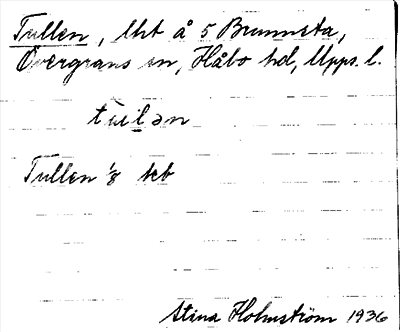 Tullen, lht å 5 Brunnsta,
Övergrans sn, Håbo hd, Upps. l.
Tullen 1/8 teb
Stina Holmström 1936